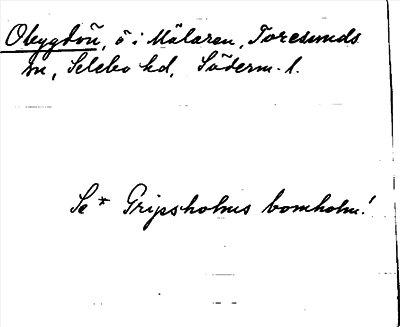 Obygdön, ö i Mälaren, Toresunds
sn, Selebo hd, Söderm. l.
Se * Gripsholms bomholm!